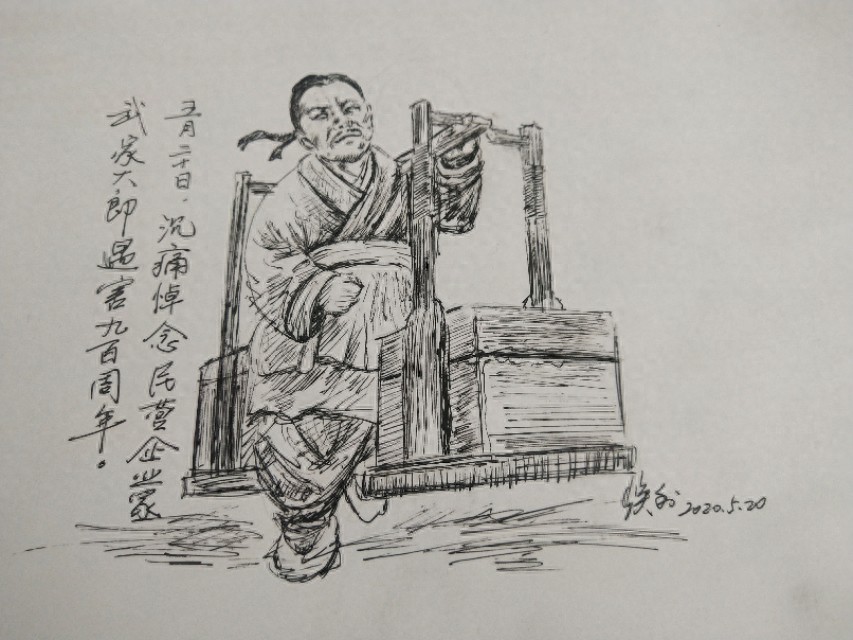 五月二十日，沉痛悼念民营企业家
武家大郎遇害九百周年。
2020.5.20